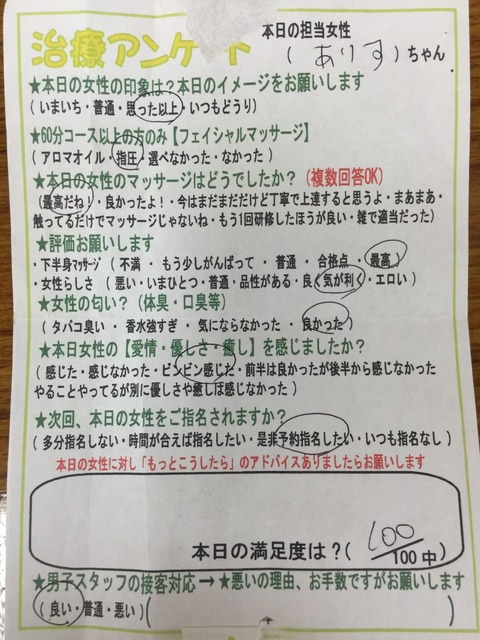 治療アンケート
本日の担当女性
( ありす ) ちゃん
★本日の女性の印象は？本日のイメージをお願いします
( いまいち・普通・思った以上・いつもどうり )
★60分コース以上の方のみ【フェイシャルマッサージ】
( アロマオイル・指圧・選べなかった・なかった )
★本日の女性のマッサージはどうでしたか？ (複数回答OK)
(最高だね！・良かったよ！・今はまだまだだけど丁寧で上達すると思うよ・まあまあ・
触ってるだけでマッサージじゃないね・もう1回研修したほうが良い・雑で適当だった)
★評価お願いします
・下半身マッサージ ( 不満 ・ もう少しがんばって ・ 普通 ・ 合格点 ・ 最高 )
・女性らしさ ( 悪い・いまひとつ・普通・品性がある・良く気が利く・エロい )
★女性の匂い？ (体臭・口臭等)
( タバコ臭い ・ 香水強すぎ ・ 気にならなかった ・ 良かった )
★本日女性の【愛情・優しさ・癒し】を感じましたか？
( 感じた・感じなかった・ビンビン感じた・前半は良かったが後半から感じなかった
やることやってるが別に優しさや癒しは感じなかった )
★次回、本日の女性をご指名されますか？
( 多分指名しない・時間が合えば指名したい・是非予約指名したい・いつも指名なし )
本日の女性に対し「もっとこうしたら」のアドバイスありましたらお願いします
本日の満足度は？( 100/100中 )
★男子スタッフの接客対応 → ★悪いの理由、お手数ですがお願いします
( 良い・普通・悪い ) ( )